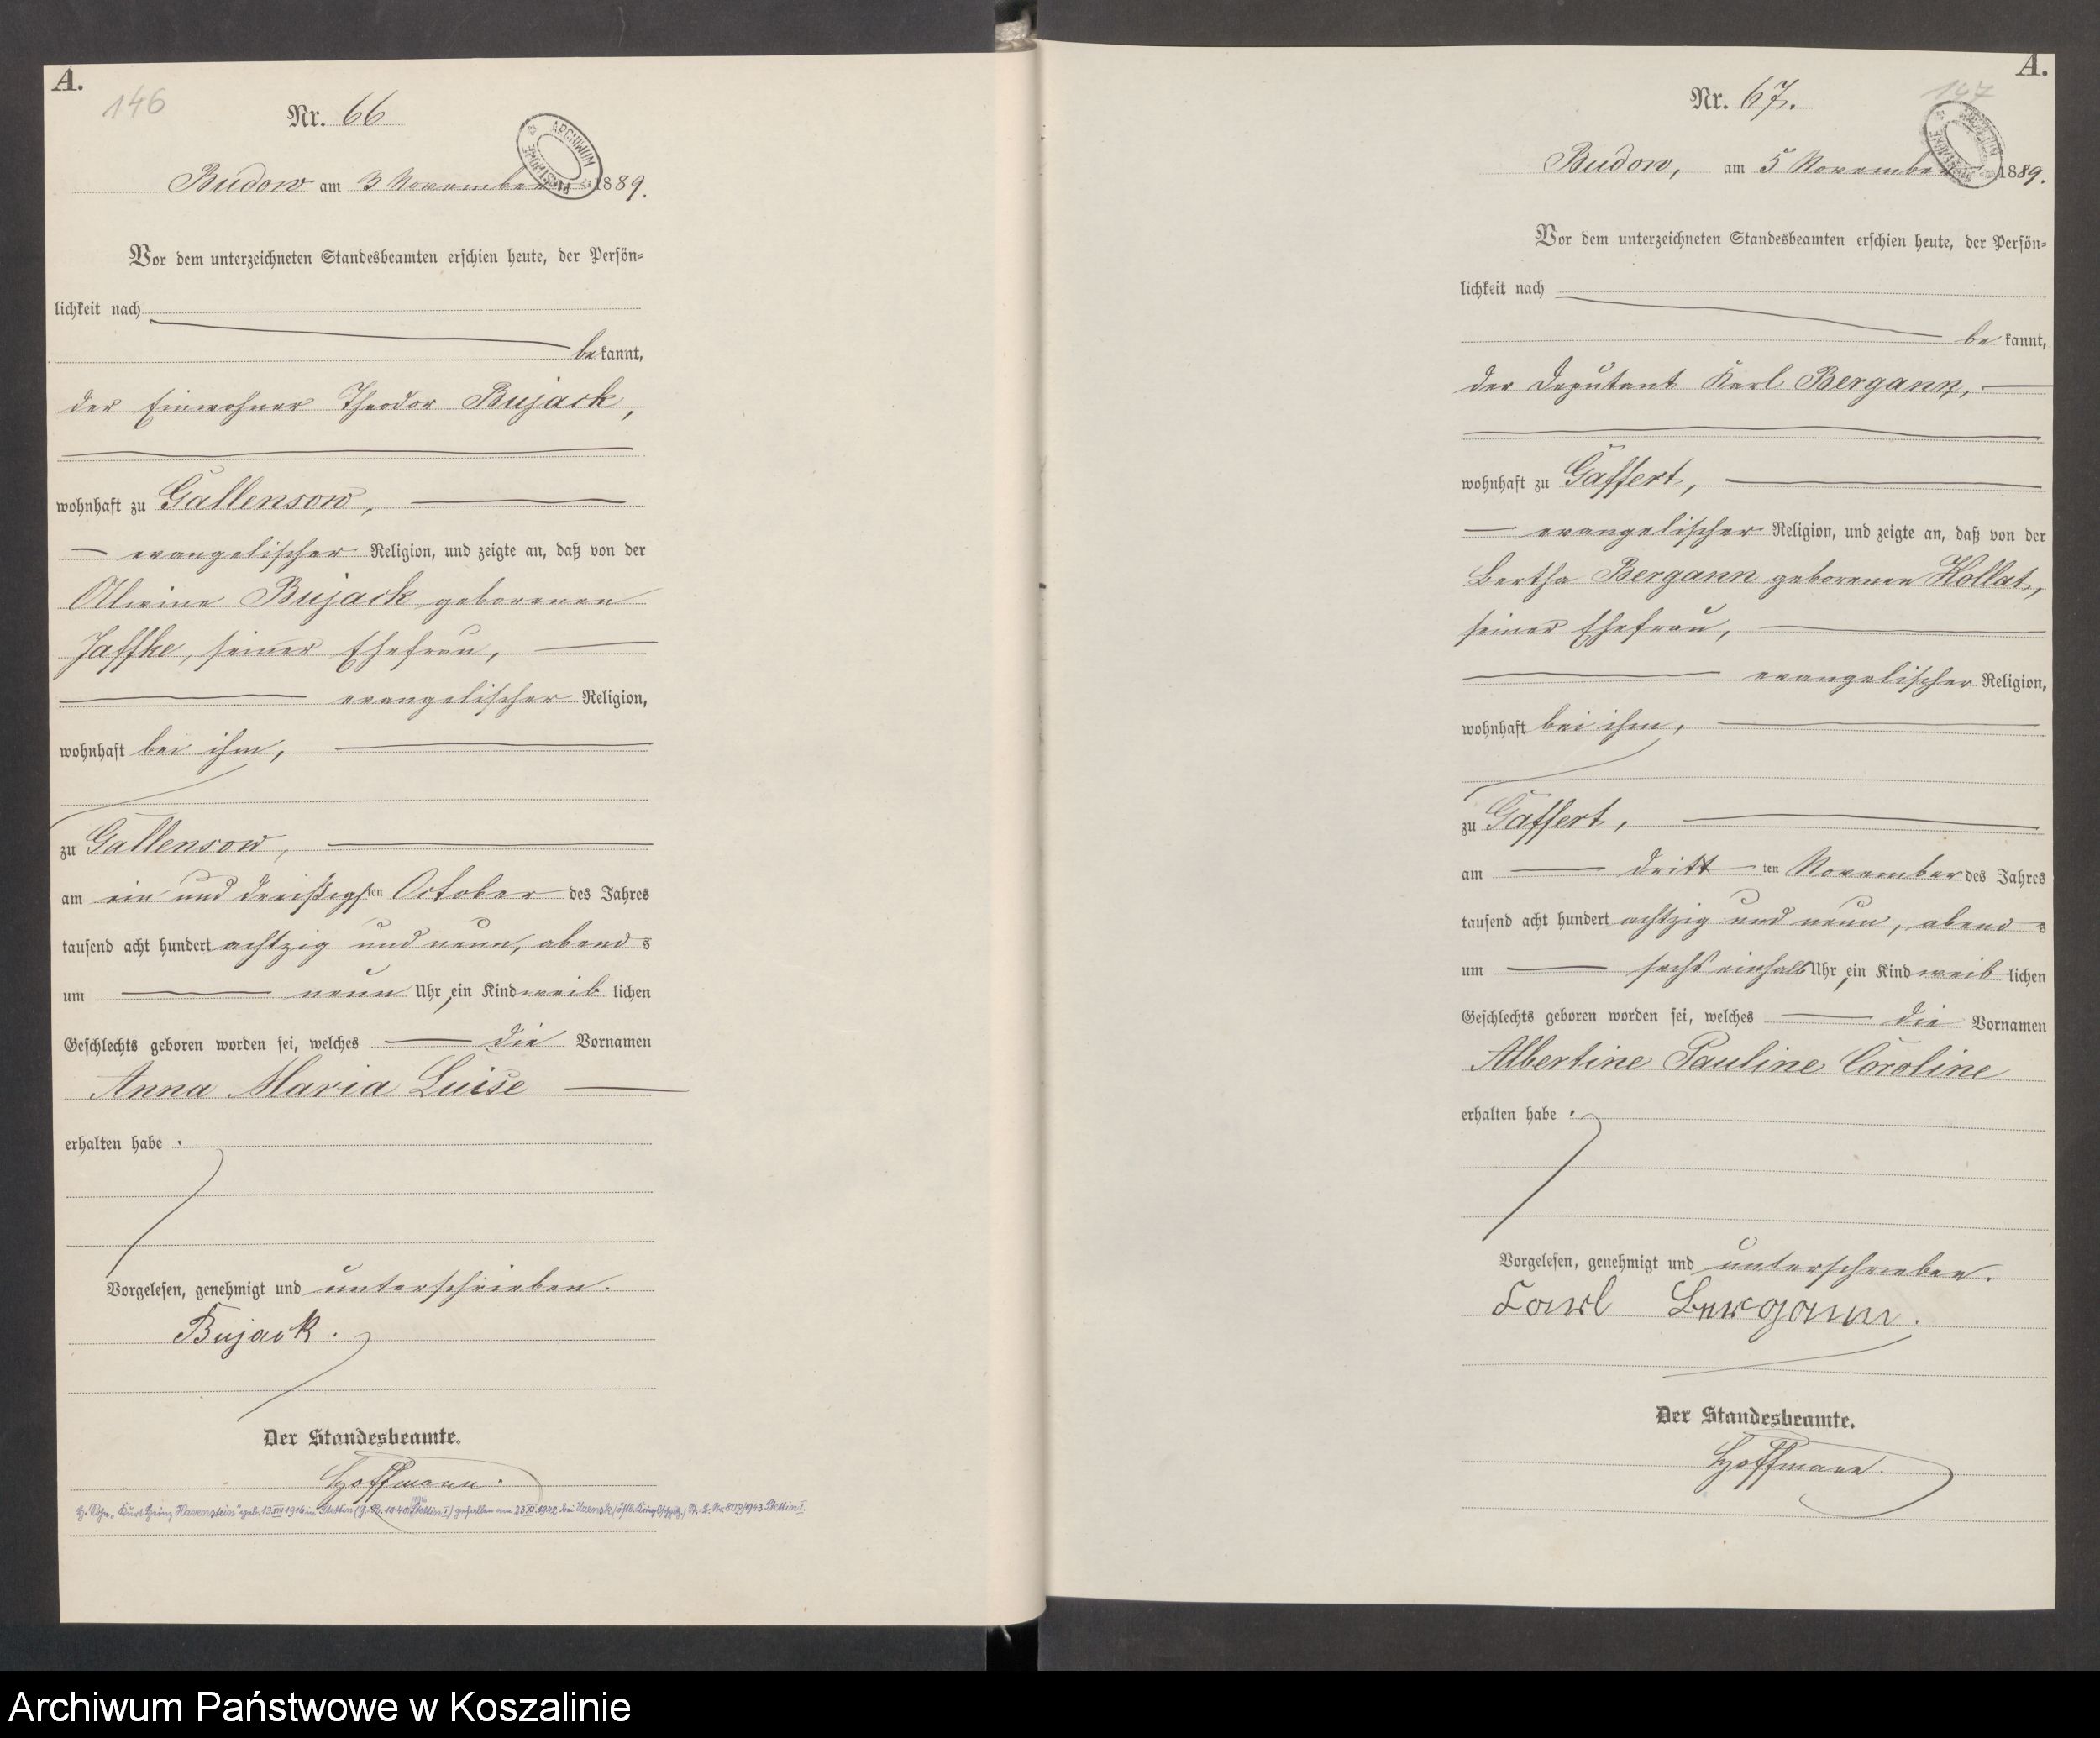 A.
146
Nr. 66
ARCHIWUM PAŃSTWOWE
Budow am 3 November 1889.
Vor dem unterzeichneten Standesbeamten erschien heute, der Persön=
lichkeit nach
be kannt,
der Einwohner Theodor Bujack,
wohnhaft zu Gallensow,
evangelischer Religion, und zeigte an, daß von der
Alwine Bujack geborenen
Jaffke, seiner Ehefrau,
evangelischer Religion,
wohnhaft bei ihm,
zu Gallensow,
am ein und dreißigsten October des Jahres
tausend acht hundert achtzig und neun, abends
um neun Uhr, ein Kind weiblichen
Geschlechts geboren worden sei, welches die Vornamen
Anna Maria Luise
erhalten habe.
Vorgelesen, genehmigt und unterschrieben.
Bujack.
Der Standesbeamte.
Hoffmann.
"Kurt Heinz Havenstein" geb. 13.VII.1916 in Stettin gefallen am 1942 bei 1943 Stettin I.
A.
147
Nr. 67.
Budow, am 5 November 1889.
Vor dem unterzeichneten Standesbeamten erschien heute, der Persön=
lichkeit nach
be kannt,
der Deputant Karl Bergann,
wohnhaft zu Gaffert,
evangelischer Religion, und zeigte an, daß von der
Bertha Bergann geborenen Kollat,
seiner Ehefrau,
evangelischer Religion,
wohnhaft bei ihm,
zu Gaffert,
am dritt ten November des Jahres
tausend acht hundert achtzig und neun, abends
um sechs einhalb Uhr, ein Kind weiblichen
Geschlechts geboren worden sei, welches die Vornamen
Albertine Pauline Caroline
erhalten habe.
Vorgelesen, genehmigt und unterschrieben.
Carl Bergann.
Der Standesbeamte.
Hoffmann.
Archiwum Państwowe w Koszalinie